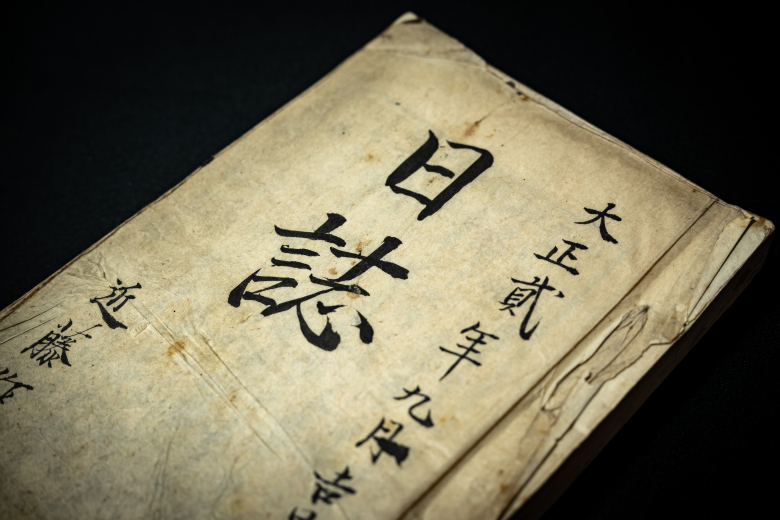 大正貳年九月吉日
日誌
近藤作